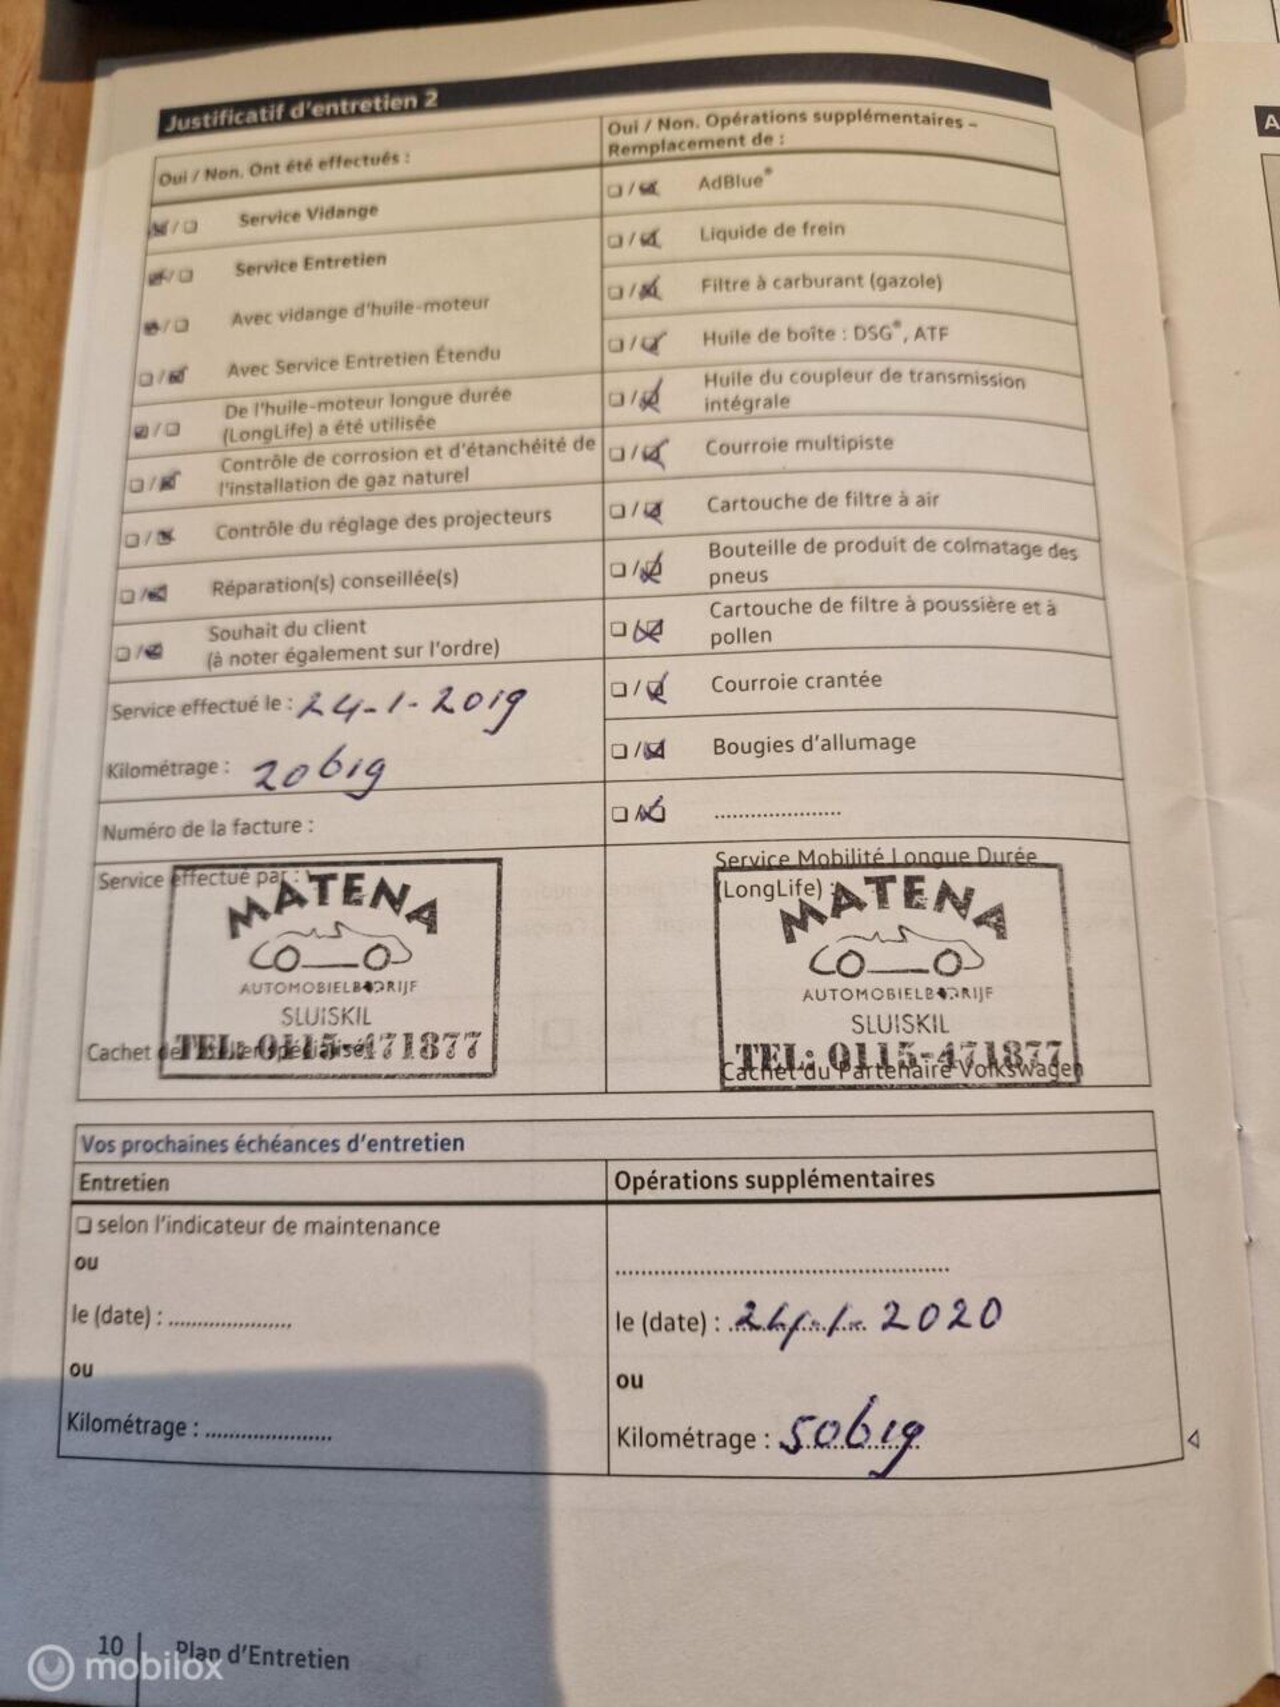 Justificatif d'entretien 2
Oui / Non. Ont été effectués :
Service Vidange
Service Entretien
Avec vidange d'huile-moteur
Avec Service Entretien Étendu
De l'huile-moteur longue durée
(LongLife) a été utilisée
Contrôle de corrosion et d'étanchéité de
l'installation de gaz naturel
Contrôle du réglage des projecteurs
Réparation(s) conseillée(s)
Souhait du client
(à noter également sur l'ordre)
Service effectué le : 24-1-2019
Kilométrage : 20619
Numéro de la facture :
Service effectué par :
MATENA
AUTOMOBIELBEDRIJF
SLUISKIL
TEL: 0115-471877
Cachet de l'atelier spécialisé
Oui / Non. Opérations supplémentaires –
Remplacement de :
AdBlue®
Liquide de frein
Filtre à carburant (gazole)
Huile de boîte : DSG®, ATF
Huile du coupleur de transmission
intégrale
Courroie multipiste
Cartouche de filtre à air
Bouteille de produit de colmatage des
pneus
Cartouche de filtre à poussière et à
pollen
Courroie crantée
Bougies d'allumage
.....................
Service Mobilité Longue Durée
(LongLife) :
MATENA
AUTOMOBIELBEDRIJF
SLUISKIL
TEL: 0115-471877
Cachet du Partenaire Volkswagen
Vos prochaines échéances d'entretien
Entretien
selon l'indicateur de maintenance
ou
le (date) : .....................
ou
Kilométrage : .....................
Opérations supplémentaires
.....................
le (date) : 24-1-2020
ou
Kilométrage : 50619
10
Plan d'Entretien
mobilox
A